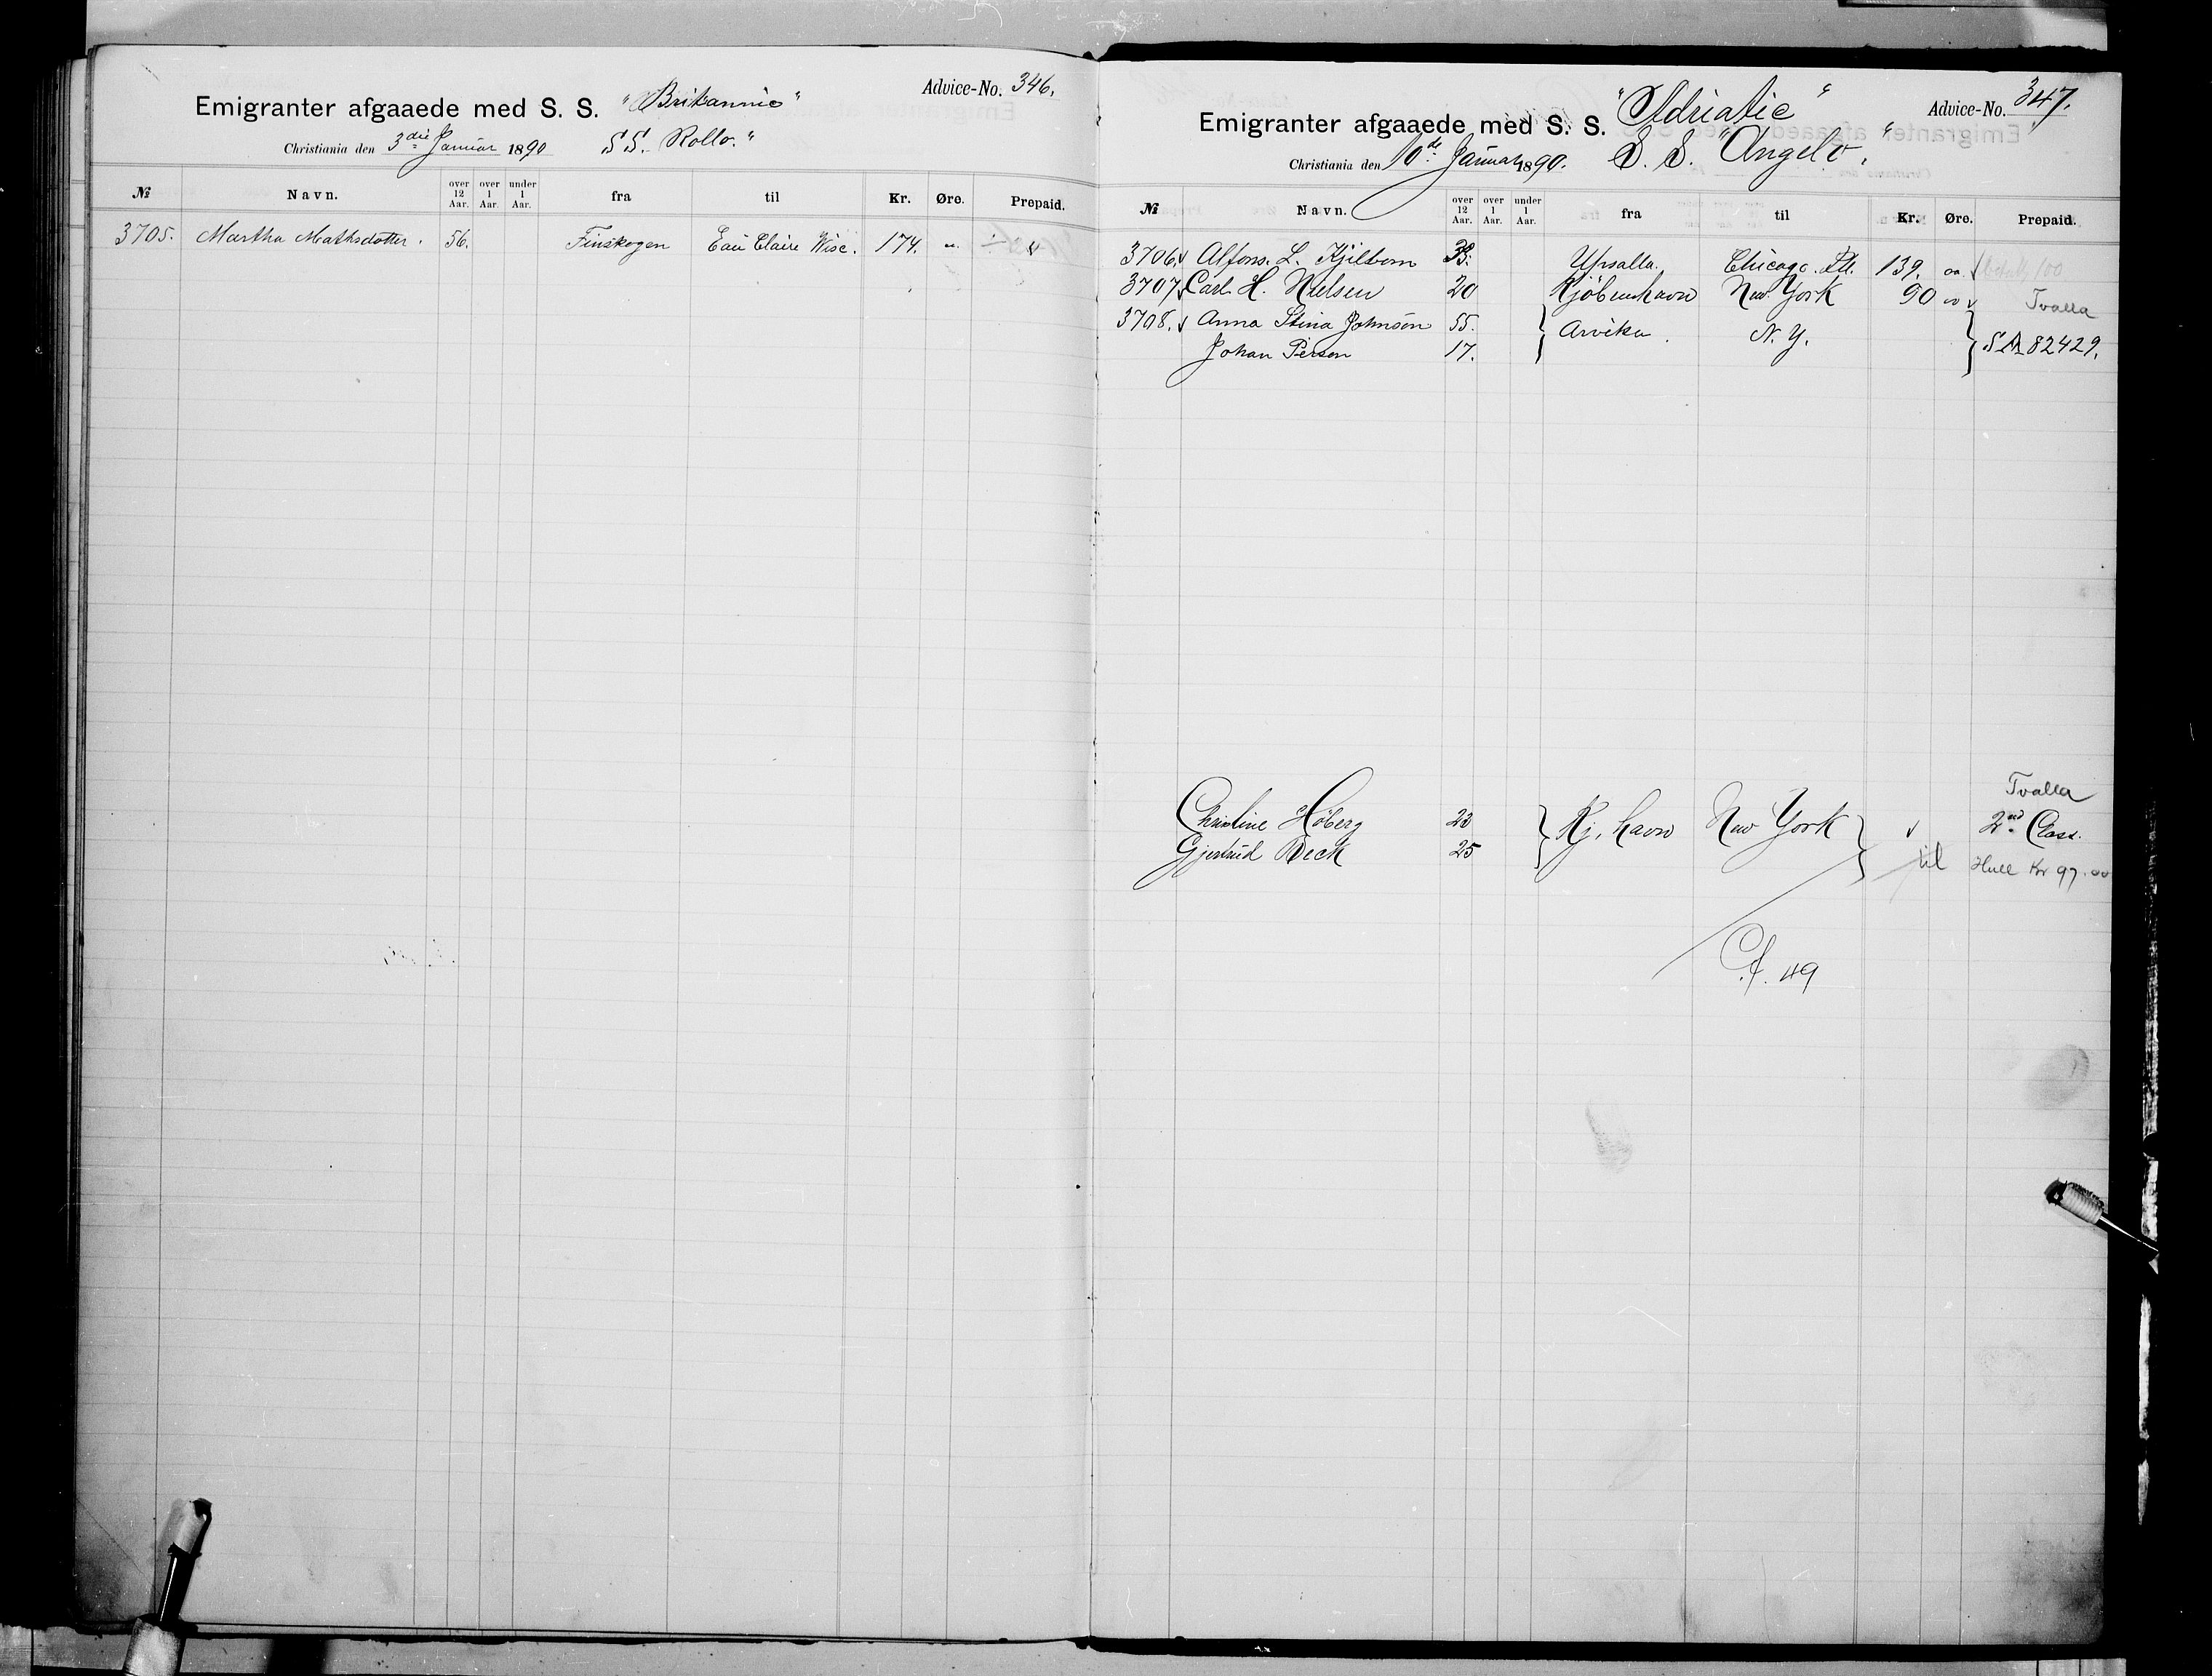 Advice-No. 346.
Emigranter afgaaede med S. S. "Britannic"
Christiania den 3die Januar 1890 S.S. Rollo."
№ Navn. over 12 Aar. over 1 Aar. under 1 Aar. fra til Kr. Øre. Prepaid.
3705. Martha Mathsdotter. 56. Finskogen Eau Claire Wisc. 174. "
Advice-No. 347.
Emigranter afgaaede med S. S. "Adriatic"
Christiania den 10de Januar 1890. S. S. "Angelo."
№ Navn. over 12 Aar. over 1 Aar. under 1 Aar. fra til Kr. Øre. Prepaid.
3706. Alfons. L. Kjilbom Upsalla. Chicago. Ill. 139. oo.
3707 Carl H. Nielsen 20 Kjöbenhavn New York 90 oo Tvalla
3708. Anna Stina Johnson 55. Arvika. N. Y. 82429.
Johan Person 17.
Tvalla
Christine Höberg 23 Kj. havn New York 2nd Class.
Gjertrud Beck 25 til Hull Kr 97.00
Cf. 49